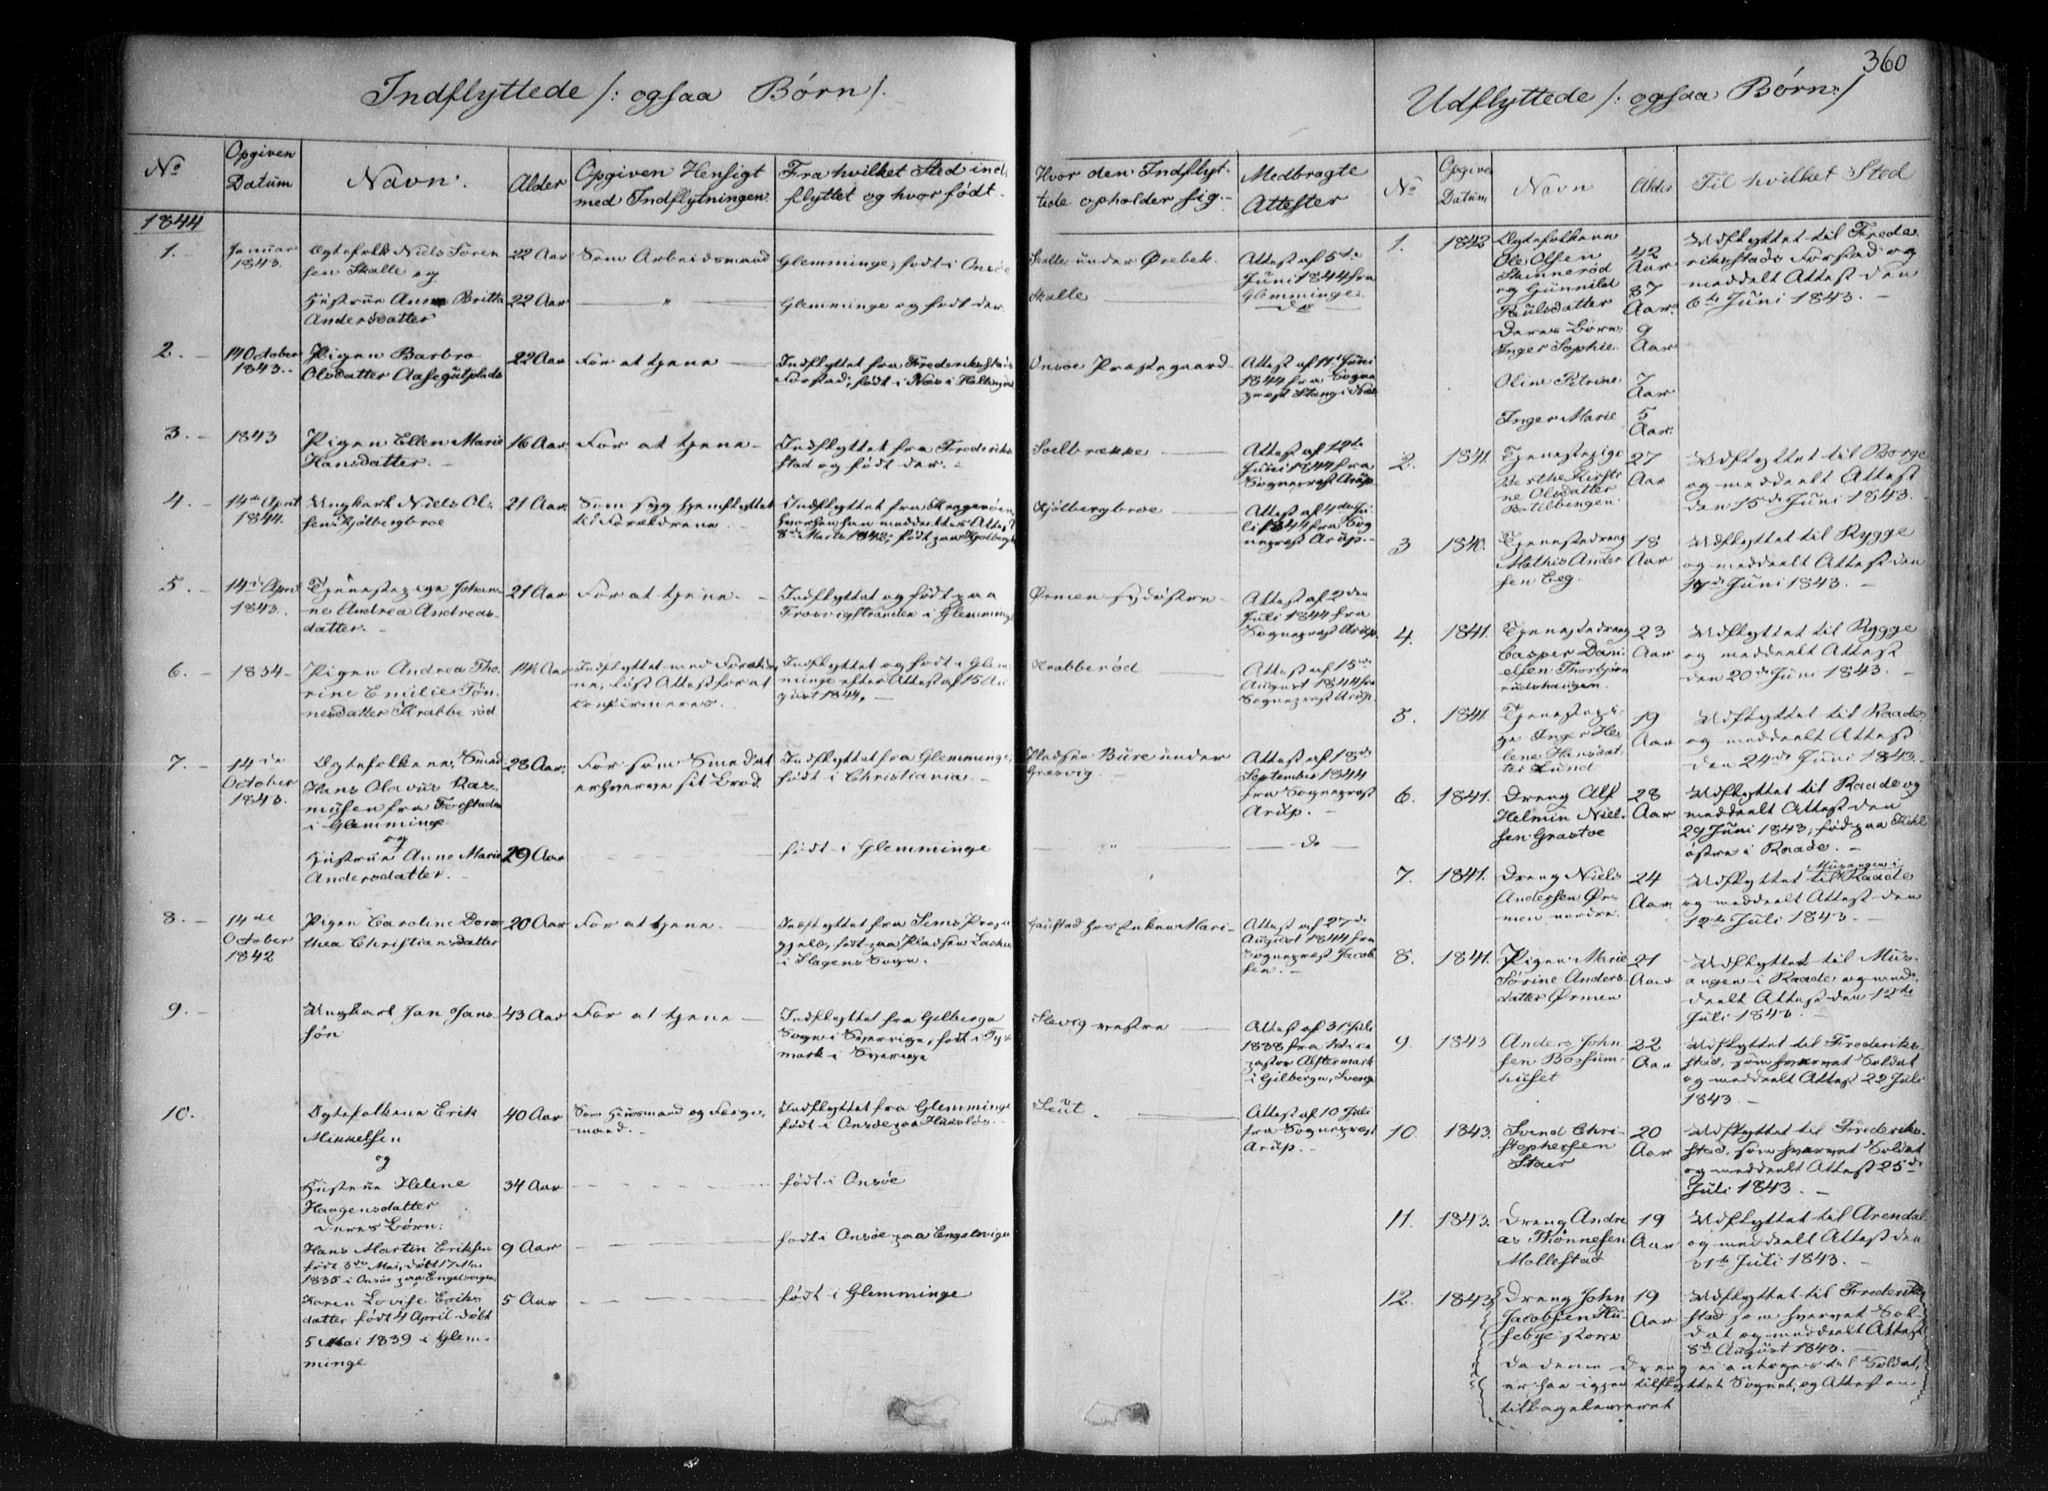 360
Indflyttede /: ogsaa Børn /.
No
Opgiven Datum
Navn.
Alder
Opgiven Hensigt med Indflytningen.
Fra hvilket Sted ind-
flyttet og hvor født.
Hvor den Indflyt-
tede opholder sig.
Medbragte Attester
1844
1.
Januar 1843.
Ægtefolk Niels Søren
sen Skalle og
22 Aar
Som Arbeidsmand
Glemminge, født i Onsøe
Skalle under Ørebek.
Attest af 5te
Juni 1844 fra
Glemminge.
Hustrue Anne Britta
Andersdatter
22 Aar
"
Glemminge og født der
Skalle
do
2.
14 October
1843.
Pigen Barbro
Olsdatter
22 Aar
For at tjene
Indflyttet fra Frederikstads
Forstad; født i Næs i
Onsøe Præstegaard
Attest af 11te Juni
1844 fra Sogne
præst Stang i Næs
3.
1843
Pigen Ellen Marie
Hansdatter.
16 Aar
For at tjene
Indflyttet fra Frederik
stad og født der.
Soelbrække
Attest af 12te
Juni 1844 fra
Sognepræst Arup.
4.
14de April
1844.
Ungkarl Niels Ol-
sen Kjølbergbroe
21 Aar
Som syg hjemflyttet
til Forældrene
Indflyttet fra Kragerøen,
hvorhen han meddeeltes Attest
8de Marts 1842; født paa
Kjølbergbroe
Attest af 4de Ju-
li 1844 fra Sog
nepræst Arup.
5.
14de April
1843.
Tjenestepige Johan-
ne Andrea Andreas-
datter.
21 Aar
For at tjene
Indflyttet og født paa
Trosvigstranden i Glemminge
Ørmen sydøstre
Attest af 2den
Juli 1844 fra
Sognepræst Arup.
6.
1834
Pigen Andrea Tho-
rine Emilie Tøn-
nesdatter Krabberød
14½ Aar
Indflyttet med Foræld
ne, løst Attest for at
confirmeres.
Indflyttet og født i Glem
minge efter Attest af 15 Au
gust 1844.
Krabberød
Attest af 15de
August 1844 fra
Sognepræst Arup.
7.
14de
October
1843.
Ægtefolkene, Smed
Hans Olavus Ras-
musen fra Forstaden
i Glemminge
og
28 Aar.
For som Smed at
erhverve sit Brød.
Indflyttet fra Glemminge;
født i Christiania.
Pladsen Bure under
Græsvig.
Attest af 18de
September 1844
fra Sognepræst
Arup.
Hustrue Anne Marie
Andersdatter.
29 Aar
født i Glemminge
"
do
8.
14de
October
1842
Pigen Caroline Doro
thea Christiansdatter
20 Aar
For at tjene.
Indflyttet fra Sems Præste
gjeld, født paa Pladsen
i Slagens Sogn.
Gaustad hos Enken Mari
Attest af 27de
August 1844 fra
Sognepræst Jacob
sen.
9.
Ungkarl Jan Jans-
sön
43 Aar
For at tjene
Indflyttet fra Gilberga
Sogn i Sverrige, født i
mark i Sverige
Slevig vestre
Attest af 31 Juli
1838 fra Vice
pastor
i Gilberga, Sverige
10.
Ægtefolkene Erik
Mikkelsen
og
40 Aar
Som Huusmand og Færge-
mand.
Indflyttet fra Glemminge
født i Onsøe paa
Leut.
Attest af 10 Juli
fra Sognepræst
Arup.
Hustrue Helene
Haagensdatter
34 Aar
født i Onsøe
deres Børn:
Hans Martin Eriksen
født 5te Mai, døbt 17 Mai
1835 i Onsøe paa Engelsvigen
9 Aar
født i Onsøe paa Engelsvigen
Karen Lovise Eriks
datter født 4 April døbt
5 Mai 1839 i Glem-
minge
5 Aar
født i Glemminge
Udflyttede /: ogsaa Børn:/
No
Opgiven
Datum
Navn
Alder
Til hvilket Sted
1.
1843
Ægtefolkene
Ole Olsen
Skinnerød
og Gunnild
Paulsdatter
deres Børn:
Inger Sophie
Oline Petrine
Inger Marie
42 Aar
37 Aar.
9 Aar
7 Aar
5 Aar.
Udflyttet til Frede
rikstads Forstad og
meddeelt Attest den
6te Juni 1843.
2.
1841
Tjenestepige
Berthe Kirsti-
ne Olsdatter
27 Aar
Udflyttet til Borge
og meddeelt Attest
den 15de Juni 1843.
3
1840.
Tjenestedreng
Mathis Ander
sen Eeg.
18 Aar
Udflyttet til Rygge
og meddeelt Attest den
17de Juni 1843.
4.
1841.
Tjenestedreng
Casper Dani-
elsen Thorbjørn
rødshaugen.
23 Aar
Udflyttet til Rygge
og meddeelt Attest
den 20de Juni 1843.
5.
1841
Tjenestepi-
ge Inger He-
lene Hansdat-
ter Lund
19 Aar
Udflyttet til Raade
og meddeelt Attest
den 24de Juni 1843.
6.
1841.
Dreng Alf
Helmin Niel-
sen Grastve
28 Aar
Udflyttet til Raade og
meddeelt Attest den
29 Juni 1843, født paa
østre i Raade.
7.
1841.
Dreng Niels
Andersen Ør-
men nordre.
24 Aar
Musangen i
Udflyttet til Raade
og meddeelt Attest den
12te Juli 1843.
8.
1841.
Pigen Marie
Sørine Anders
datter Ørmen
21 Aar
Udflyttet til Mus-
angen i Raade og med-
deelt Attest den 12te
Juli 1843.
9.
1843
Anders John
sen Boshum-
huset
22 Aar
Udflyttet til Frederik-
stad, som hvervet Soldat
og meddeelt Attest 22 Juli
1843.
10.
1843.
Svend Chri-
stophersen
Stær
20 Aar
Udflyttet til Frederik-
stad, som hvervet Soldat
og meddeelt Attest 25de
Juli 1843.
11.
1843.
Dreng Andre
as Thønnesen
Mollestad
19 Aar
Udflyttet til Arendal
og meddeelt Attest den
31te Juli 1843.
12.
1843
Dreng John
Jacobsen Hu-
sebye store
19 Aar
Udflyttet til Frederik
stad som hvervet Sol-
dat og meddeelt Attest
8de August 1843.
Da denne Dreng ei antoges til Soldat,
er han igjen tilflyttet Sognet, og Attesten
tilbageleveret